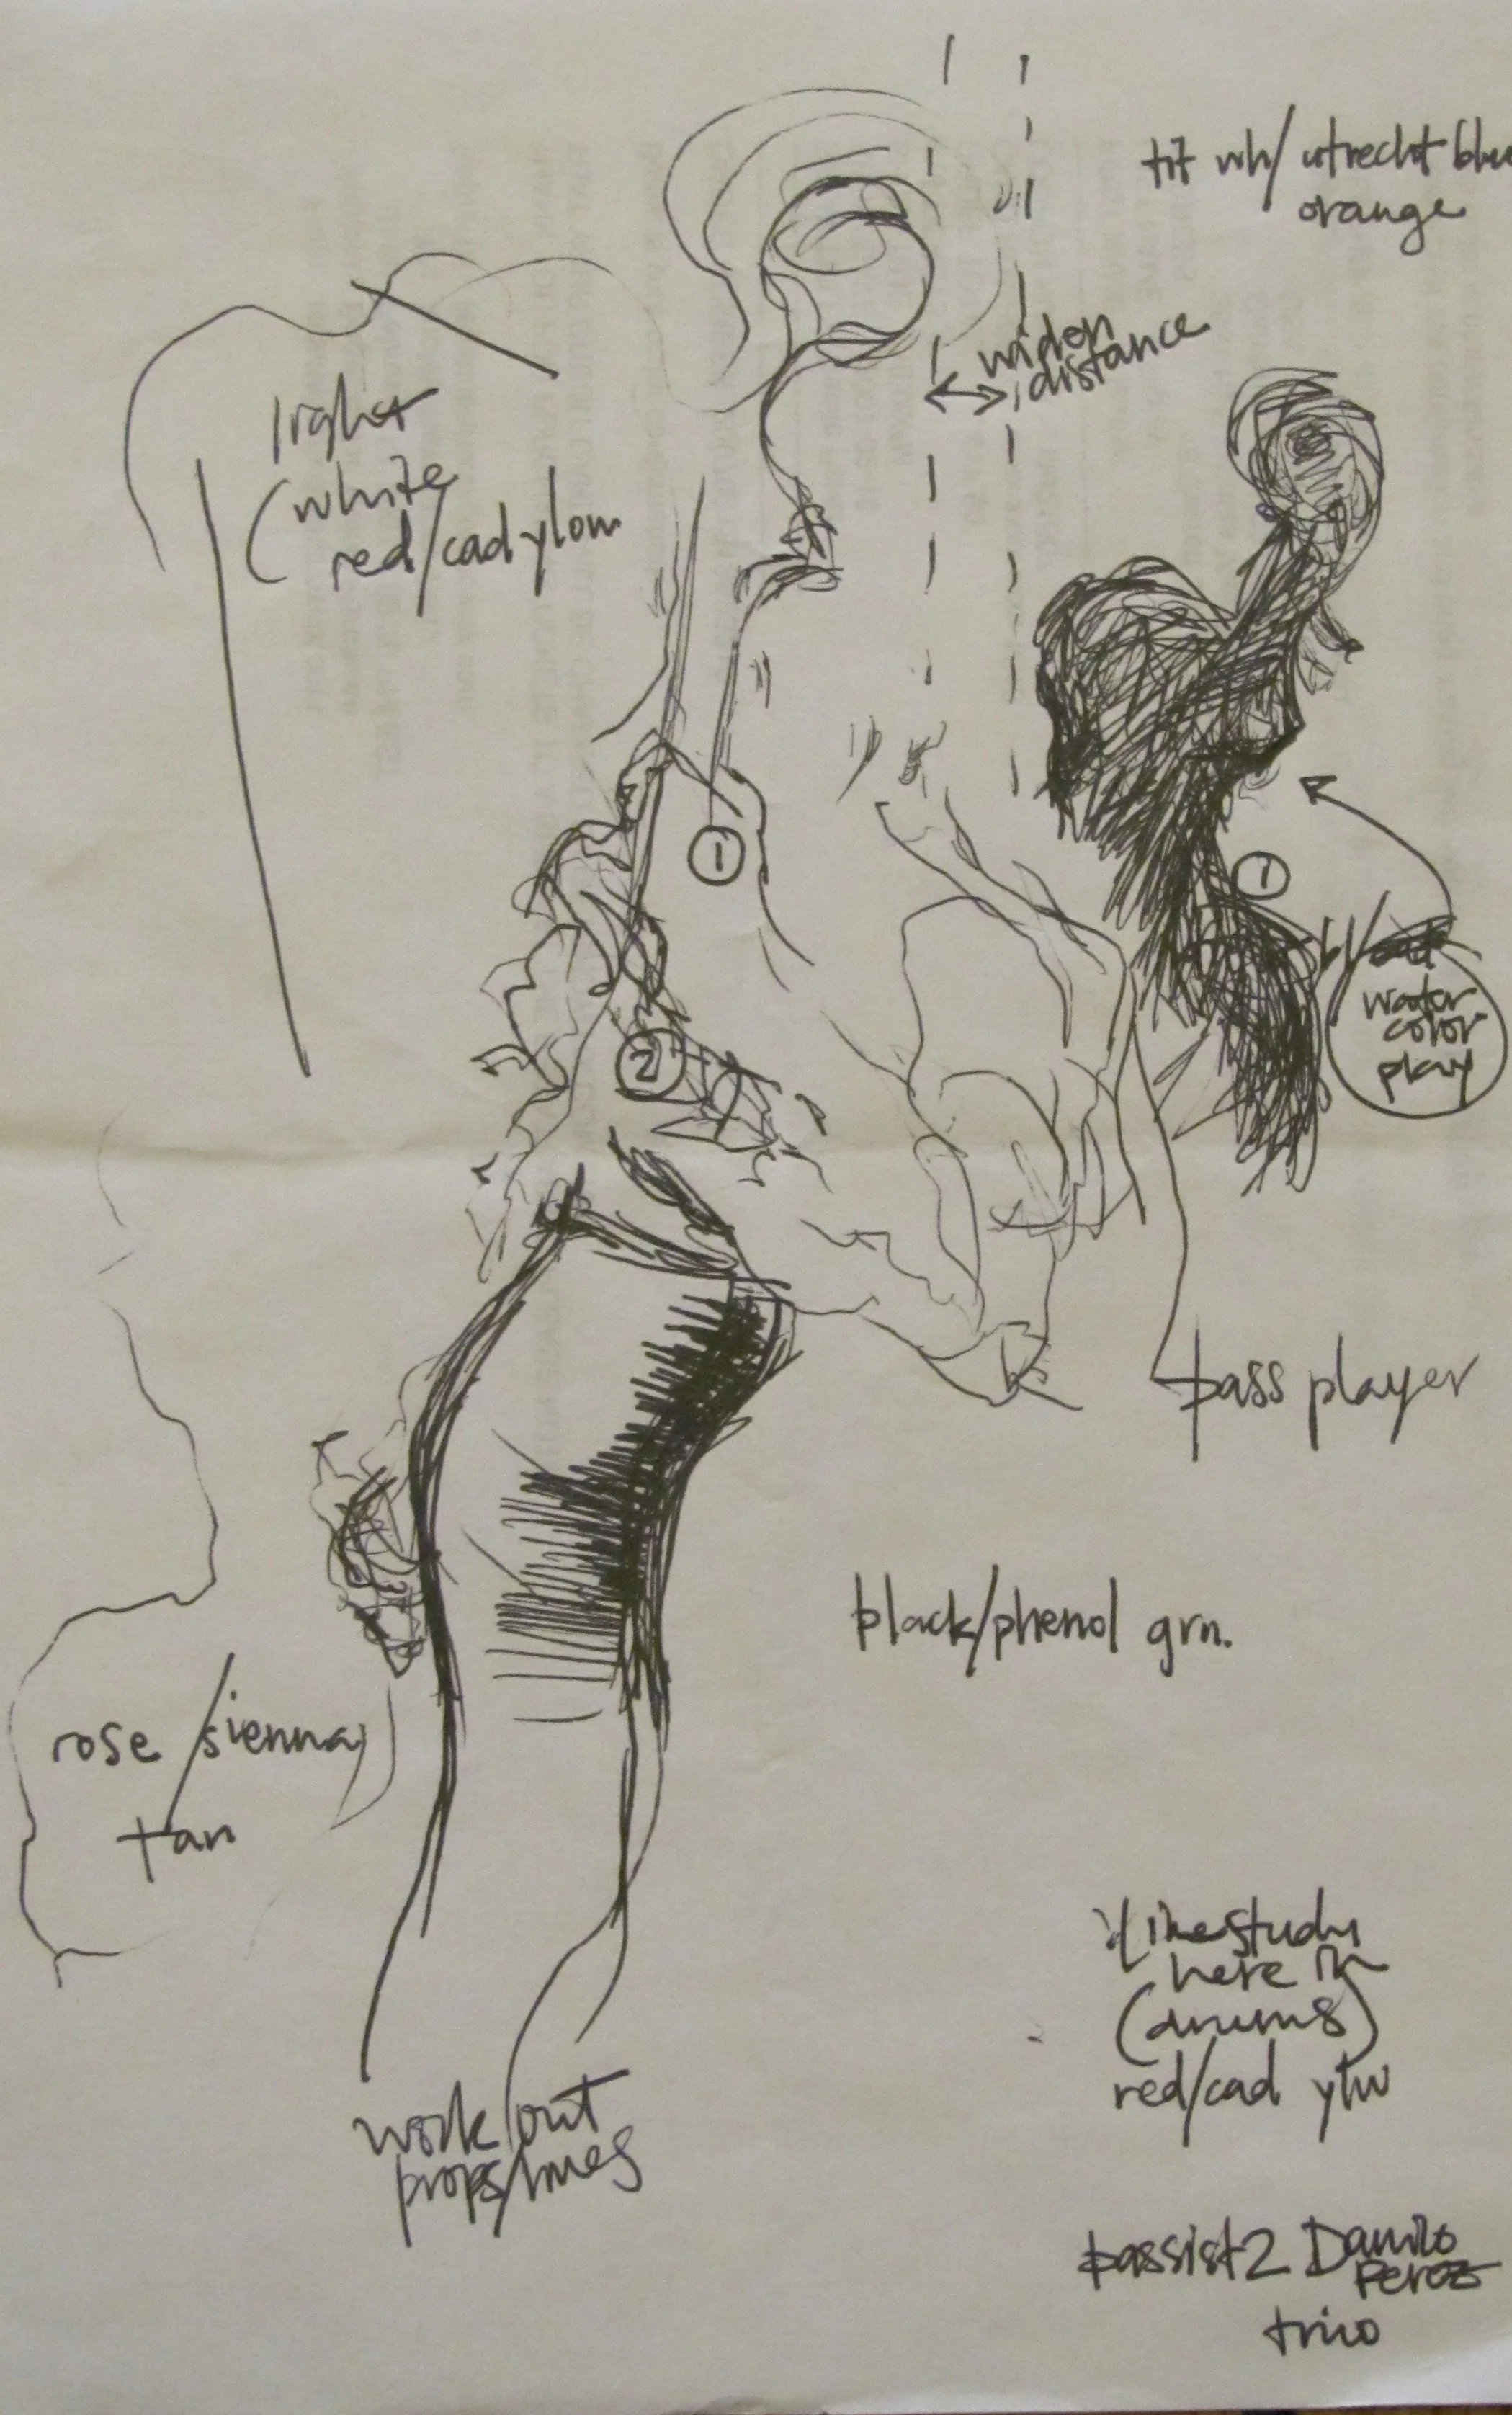 tit wh/ utrecht blu
orange
widen
distance
light
(white
red/cad ylow
1
1
water
color
play
2
bass player
black/phenol grn.
rose/sienna
tan
linestudy
here in
(drums)
red/cad ylw
work out
props/lines
bassist2 Danilo
Perez
trio